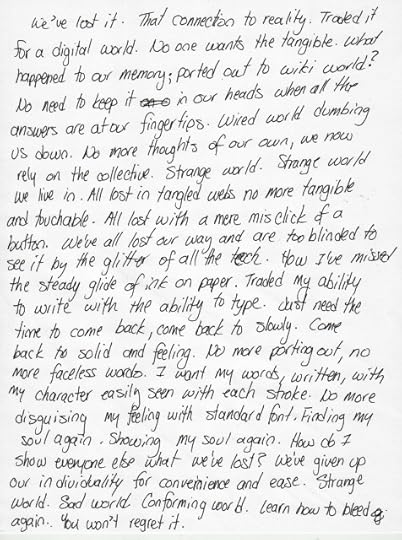 We've lost it. That connection to reality. Traded it
for a digital world. No one wants the tangible. What
happened to our memory; ported out to wiki world?
No need to keep it in our heads when all the
answers are at our fingertips. Wired world dumbing
us down. No more thoughts of our own, we now
rely on the collective. Strange world. Strange world
we live in. All lost in tangled webs no more tangible
and touchable. All lost with a mere misclick of a
button. We've all lost our way and are too blinded to
see it by the glitter of all the tech. How I've missed
the steady glide of ink on paper. Traded my ability
to write with the ability to type. Just need the
time to come back, come back to slowly. Come
back to solid and feeling. No more porting out, no
more faceless words. I want my words, written, with
my character easily seen with each stroke. No more
disguising my feeling with standard font. Finding my
soul again. Showing my soul again. How do I
show everyone else what we've lost? We've given up
our individuality for convenience and ease. Strange
world. Sad world. Conforming world. Learn how to bleed
again. You won't regret it.